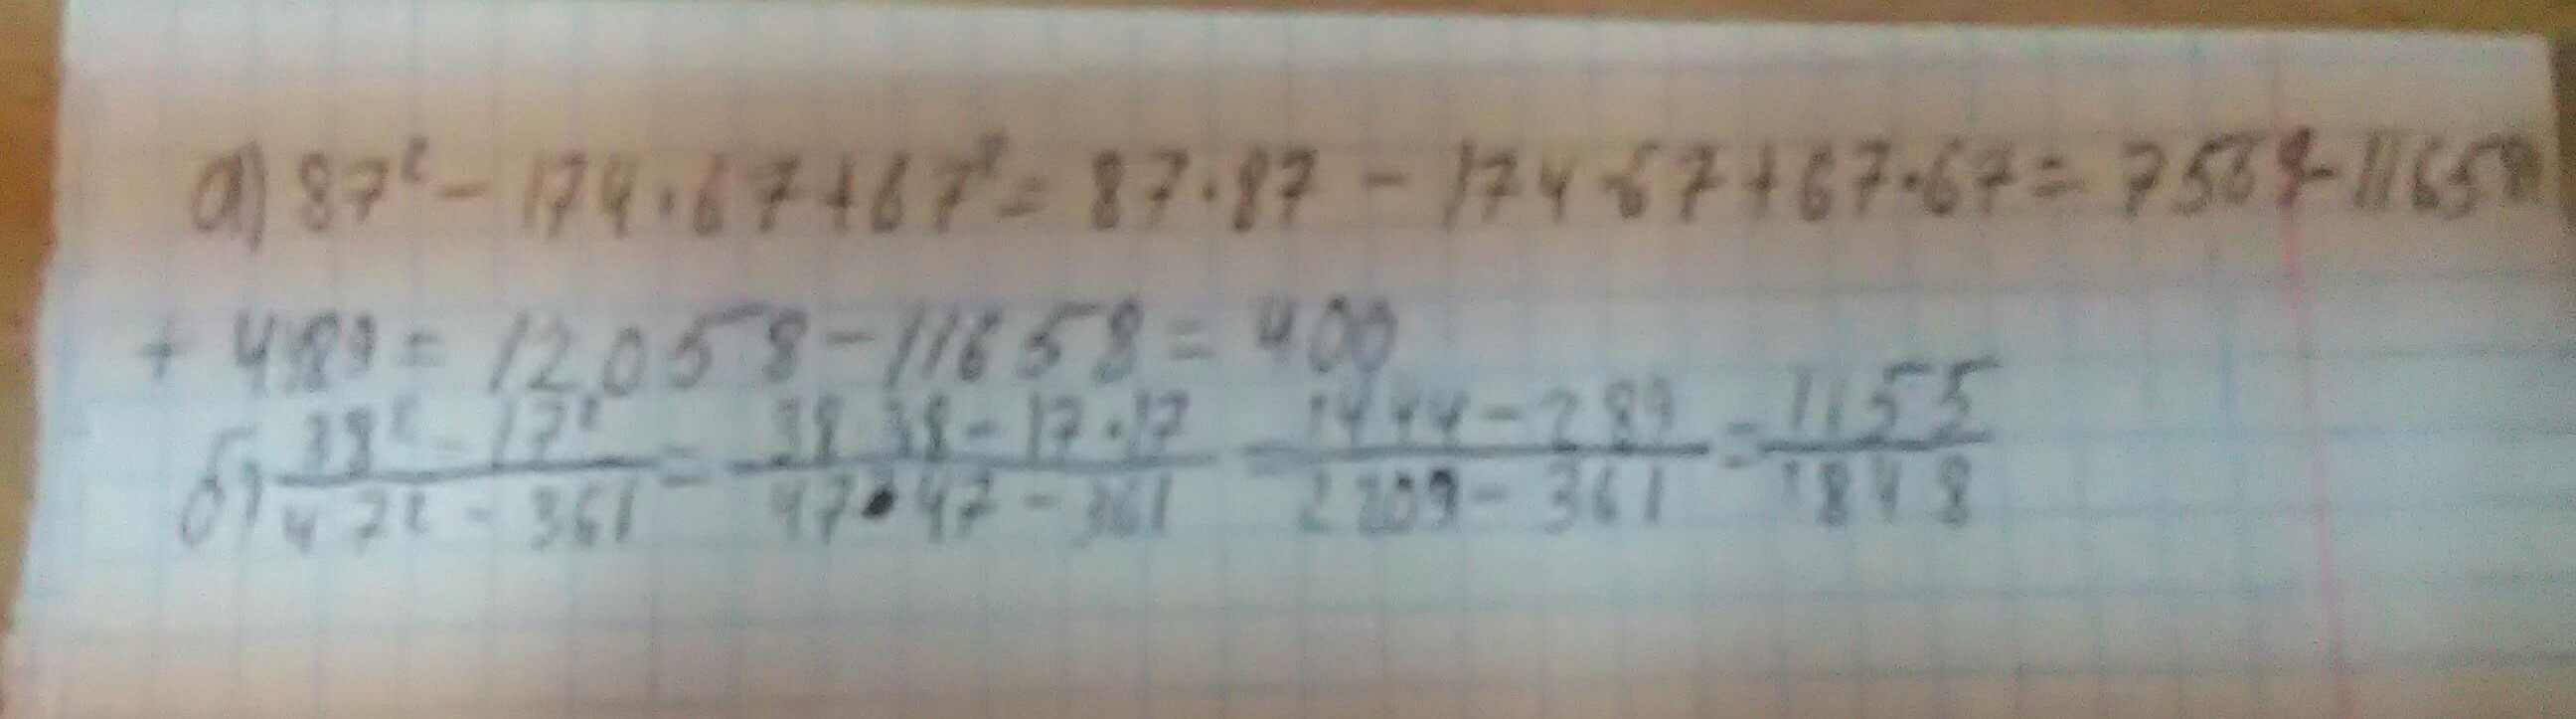 а) 87² - 174 · 67 + 67² = 87 · 87 - 174 · 67 + 67 · 67 = 7569 - 11658
+ 4489 = 12058 - 11658 = 400
б) (38² - 17²)/(47² - 361) = (38 · 38 - 17 · 17)/(47 · 47 - 361) = (1444 - 289)/(2209 - 361) = 1155/1848